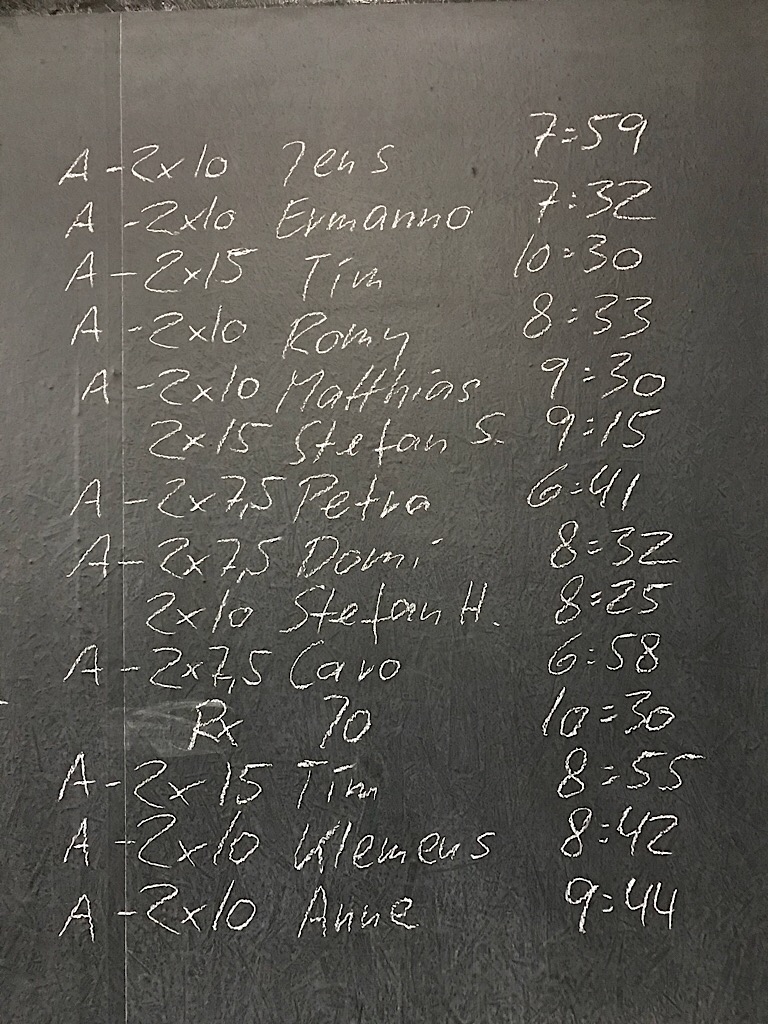 A - 2x10 Jens 7:59
A - 2x10 Ermanno 7:32
A - 2x15 Tim 10:30
A - 2x10 Romy 8:33
A - 2x10 Matthias 9:30
2x15 Stefan S. 9:15
A - 2x7,5 Petra 6:41
A - 2x7,5 Domi 8:32
2x10 Stefan H. 8:25
A - 2x7,5 Caro 6:58
Rx Jo 10:30
A - 2x15 Tim 8:55
A - 2x10 Klemens 8:42
A - 2x10 Anne 9:44